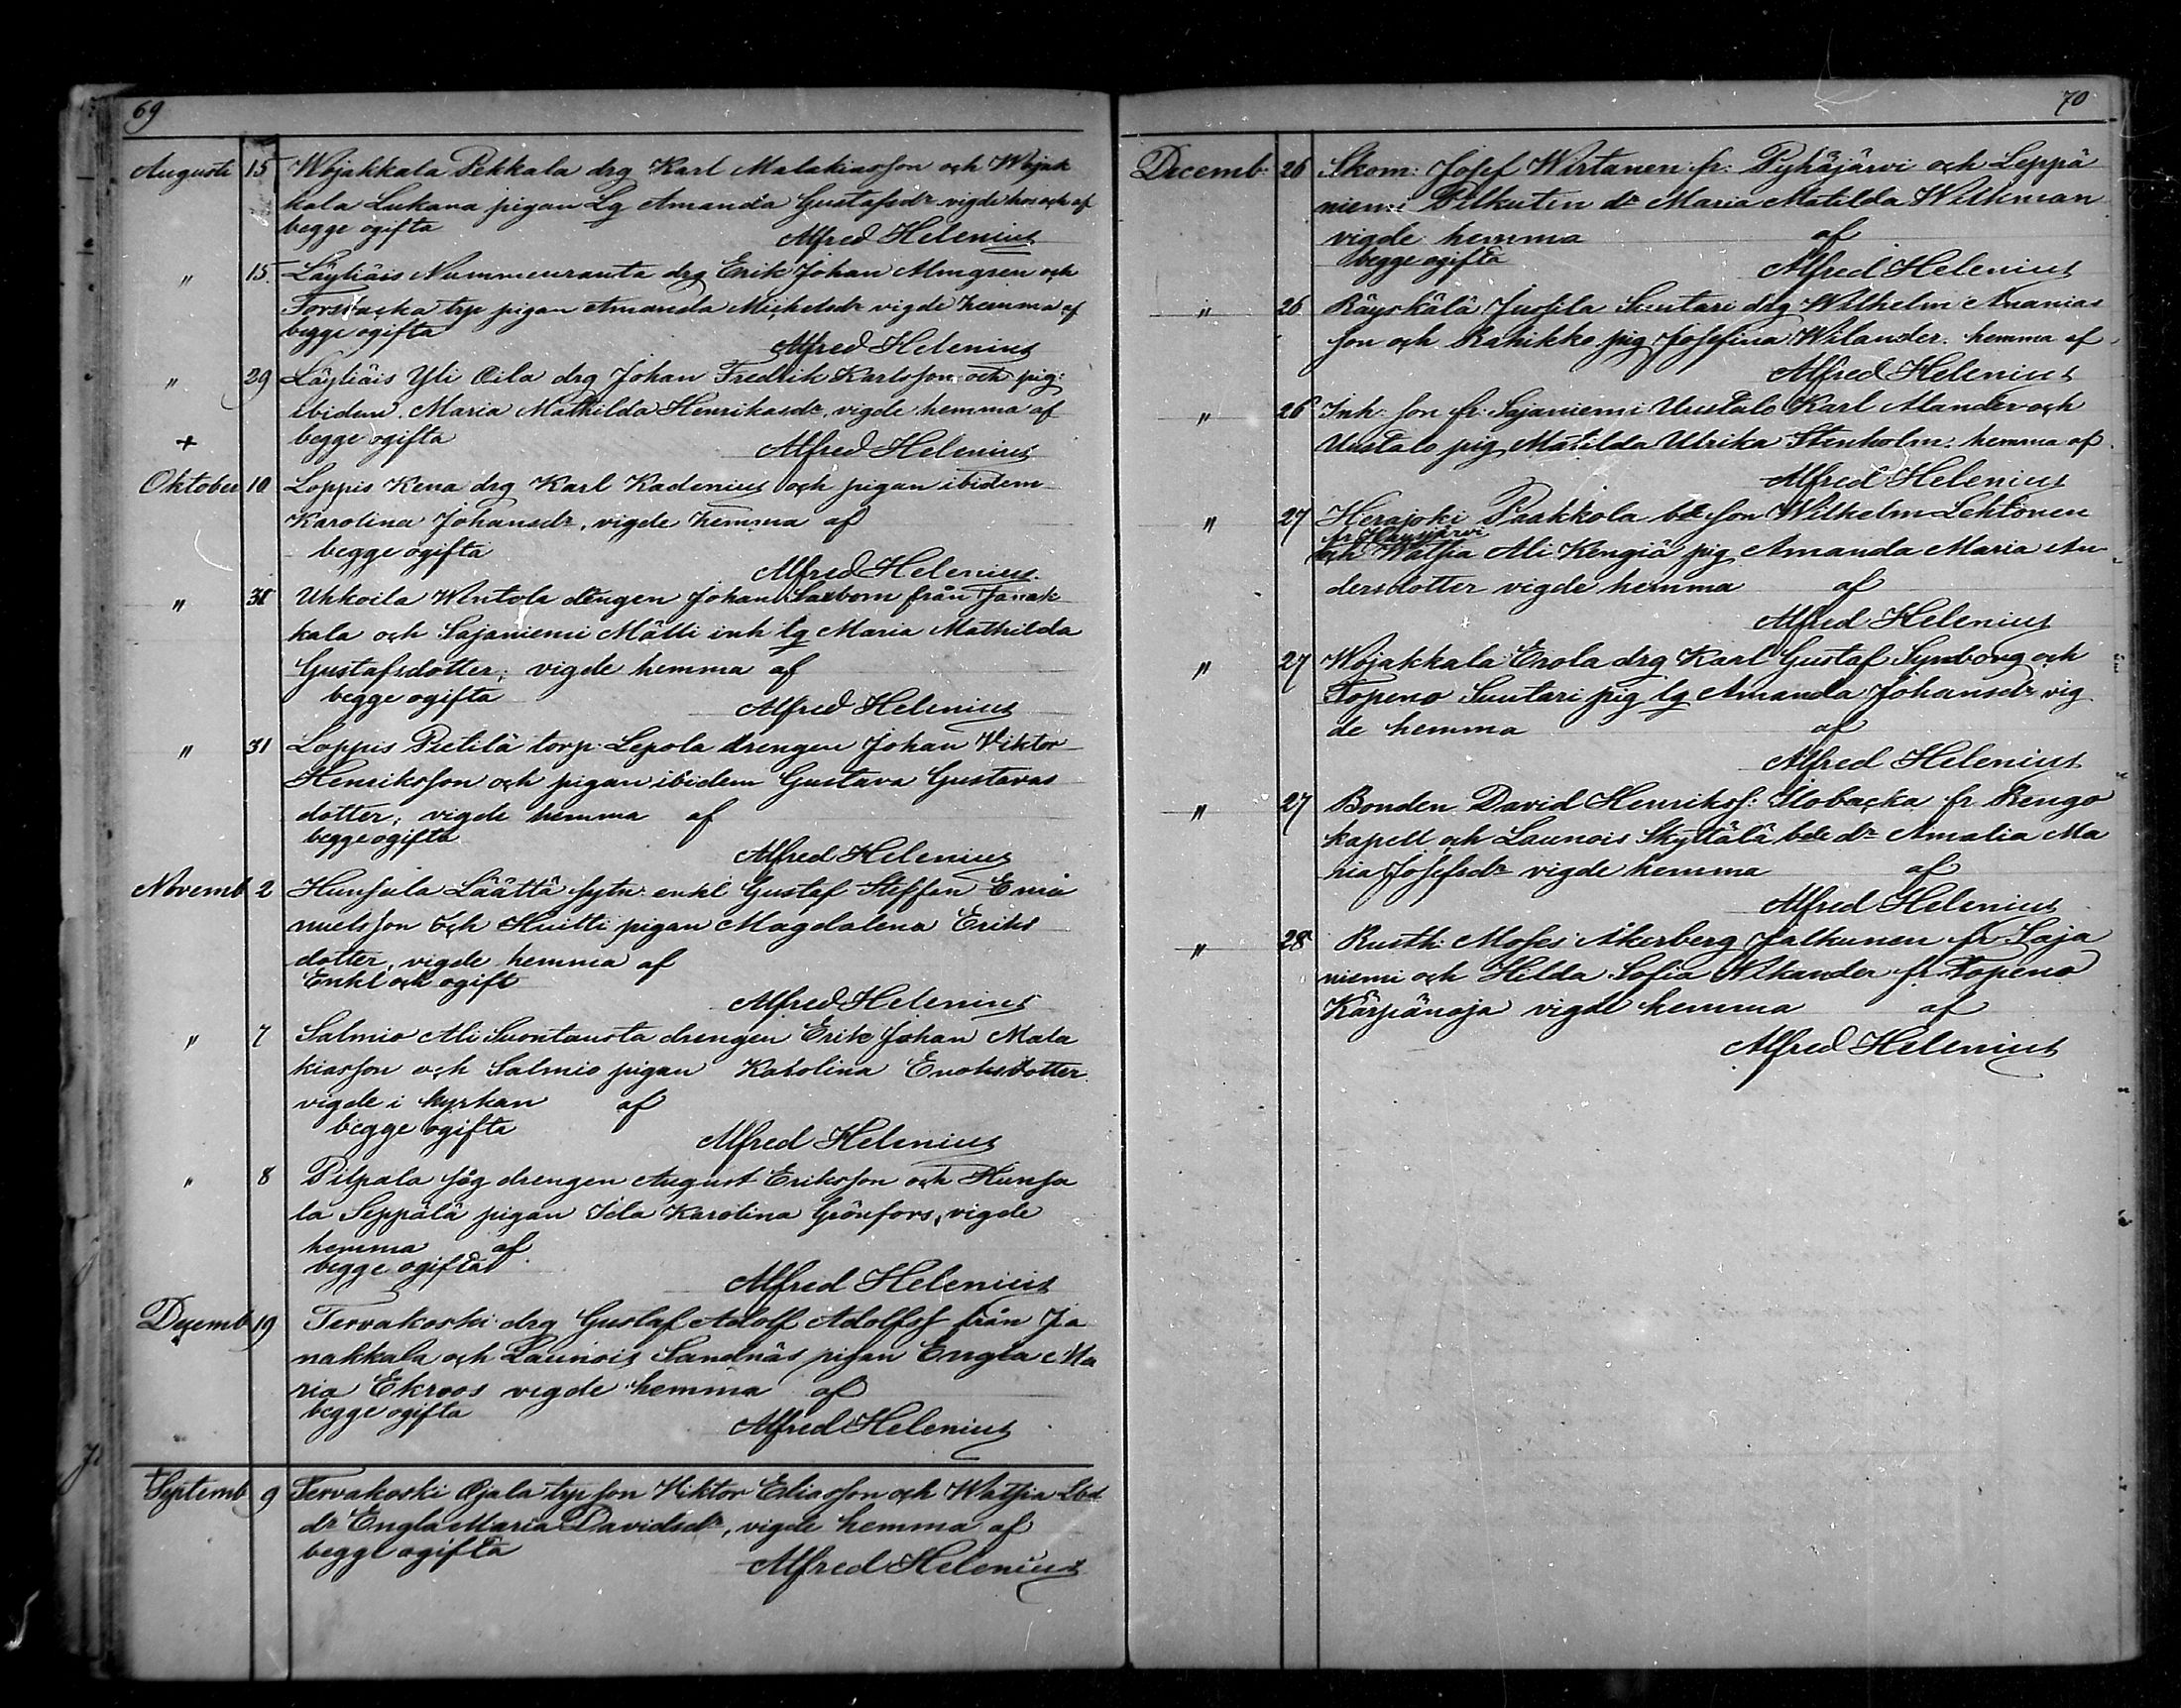 69
Augusti 15 Wojakkala Pekkala drg Karl Malakiasson och Wojak
kala Lukana pigan Lg Amanda Gustafsdr vigde hos och af
begge ogifta
Alfred Helenius
" 15. Läyliäis Nummenranta drg Erik Johan Almgren och
Forsbacka trp pigan Amanda Michelsdr vigde hemma af
begge ogifta
Alfred Helenius
" 29 Läyliäis Yli Oila drg Johan Fredrik Karlsson och pig:
ibidem. Maria Mathilda Henriksdr, vigde hemma af
+ begge ogifta
Alfred Helenius
Oktober 10 Loppis Kena drg Karl Kadenius och pigan ibidem
Karolina Johansdr, vigde hemma af
begge ogifta
Alfred Helenius.
" 31 Uhkoila Wintola drengen Johan Saxbom från Janak
kala och Sajaniemi Mätti inh lg Maria Mathilda
Gustafsdotter; vigde hemma af
begge ogifta
Alfred Helenius
" 31 Loppis Pietilä torp: Lepola drengen Johan Viktor
Henriksson och pigan ibidem Gustava Gustavas
dotter; vigde hemma af
begge ogifta
Alfred Helenius
Novemb 2 Hunsala Läättä sytn: enkl Gustaf Steffan Ema
nuelsson och Huitti pigan Magdalena Eriks
dotter, vigde hemma af
Enkl och ogift
Alfred Helenius
" 7 Salmio Ali Suontausta drengen Erik Johan Mala
kiasson och Salmio pigan Karolina Enoksdotter
vigde i kyrkan af
begge ogifta
Alfred Helenius
" 8 Pilpala såg drengen August Eriksson och Hunsa
la Seppälä pigan Ida Karolina Grönfors, vigde
hemma af
begge ogifta
Alfred Helenius
Decemb 19 Tervakoski drg Gustaf Adolf Adolfss från Ja
nakkala och Launois Sandnäs pigan Engla Ma
ria Ekroos vigde hemma af
begge ogifta
Alfred Helenius
+
Septemb 9 Tervakoski Ojala trp son Viktor Eliasson och Watsia Lbd
dr Engla Maria Davidsdr, vigde hemma af
begge ogifta
Alfred Helenius
70
Decemb: 26 Skom: Josef Wirtanen fr: Pyhäjärvi och Leppä
niemi Pilkuten dr Maria Matilda Wilkman
vigde hemma af
begge ogifta
Alfred Helenius
" 26 Räyskälä Jussila Suutari drg Wilhelm Ananias
son och Rahikko pig Josefina Wilander. hemma af
Alfred Helenius
" 26 Inh: son fr: Sajaniemi Uustalo Karl Alander och
Uustalo pig Matilda Ulrika Stenholm: hemma af
Alfred Helenius
" 27 Herajoki Paakkola bde son Wilhelm Lehtonen
fr Hausjärvi
och Watsia Ali Kengiä pig Amanda Maria An
dersdotter vigde hemma af
Alfred Helenius
" 27 Wojakkala Erola drg Karl Gustaf Synborg och
Topeno Suutari pig lg Amanda Johansdr vig
de hemma af
Alfred Helenius
" 27 Bonden David Henrikss: Ilobacka fr. Rengo
kapell och Launois Skyttälä bde dr Amalia Ma
ria Josefsdr vigde hemma af
Alfred Helenius
" 28 Rusth: Moses Åkerberg Jalkunen fr Saja
niemi och Hilda Sofia Nikander fr Topeno
Kärpänoja vigde hemma af
Alfred Helenius